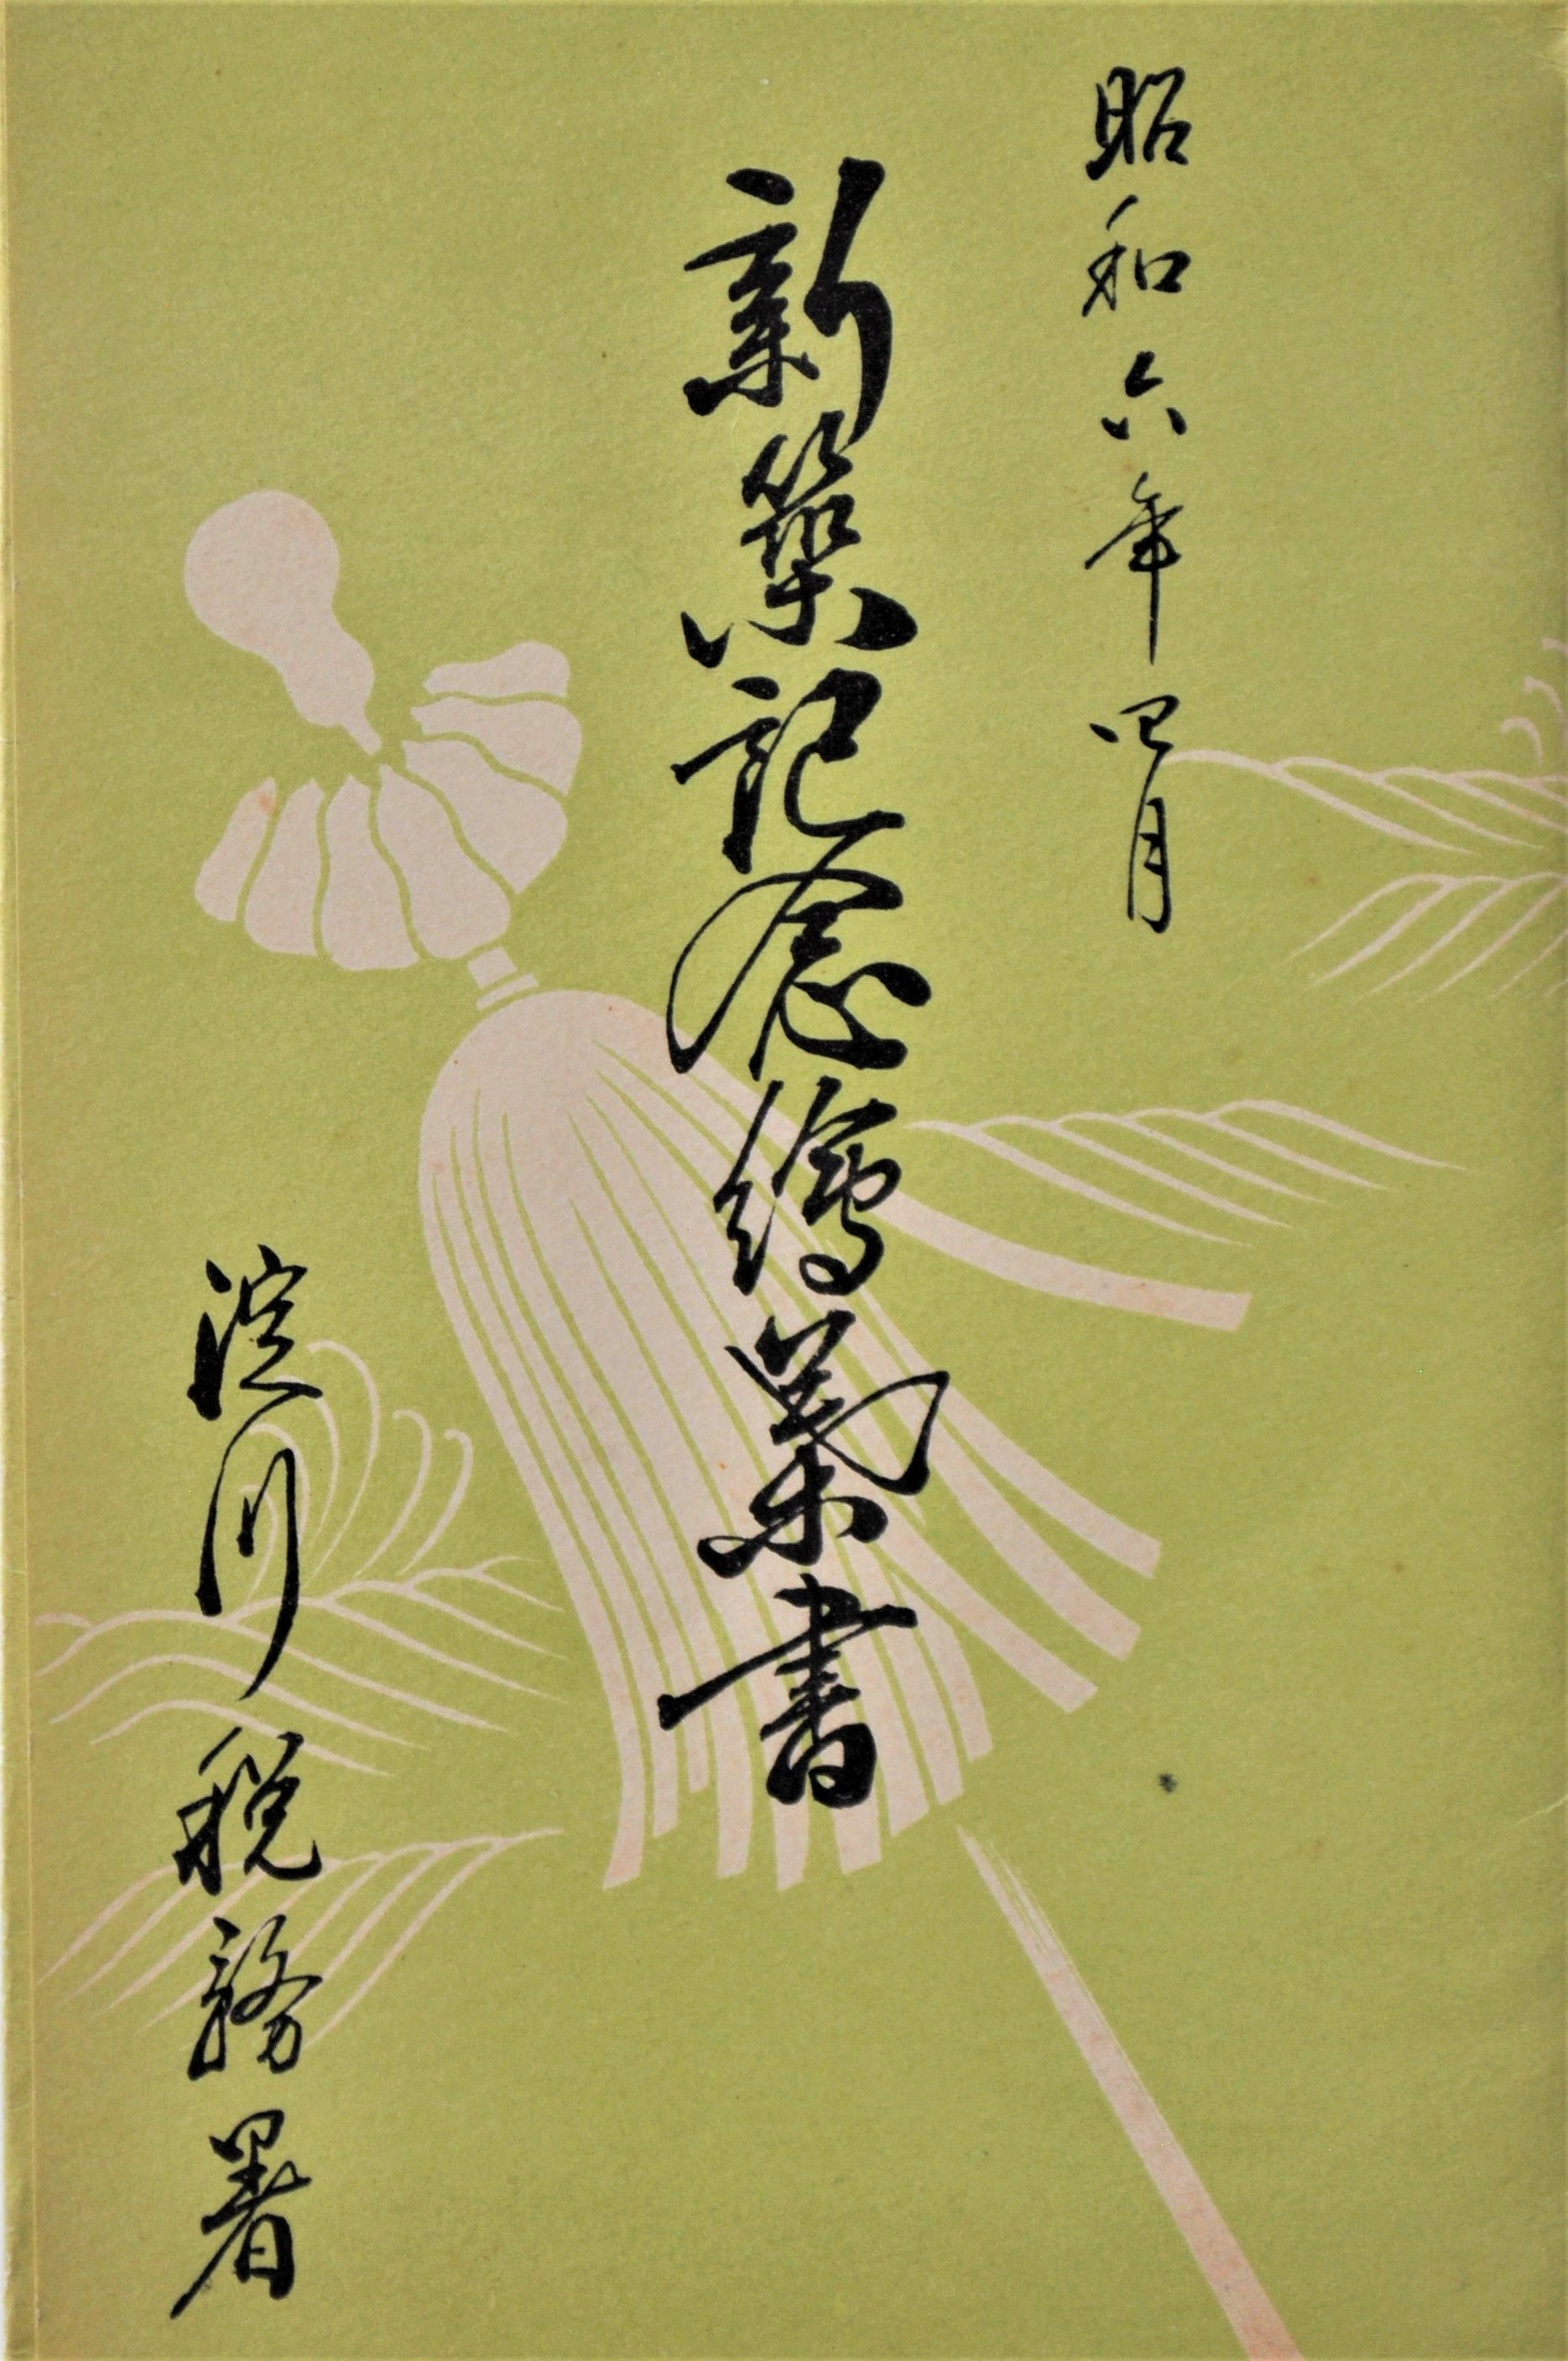 昭和六年四月
新築記念繪葉書
淀川税務署